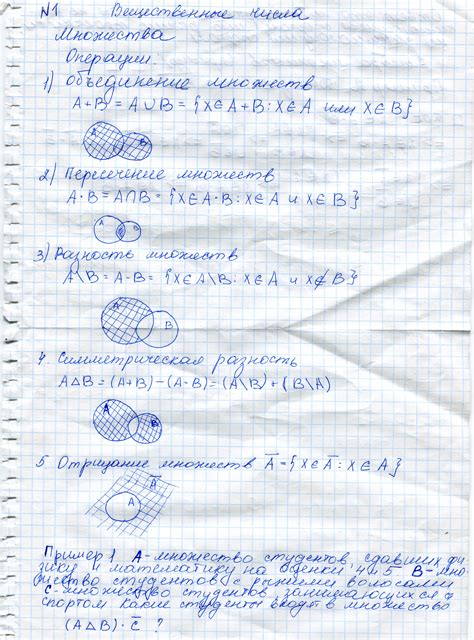 N1 Вещественные числа
Множества
Операции.
1) Объединение множеств
A+B = A∪B = {x∈A+B: x∈A или x∈B}
A B
2) Пересечение множеств
A·B = A∩B = {x∈A·B: x∈A и x∈B}
A B
3) Разность множеств
A\B = A-B = {x∈A\B: x∈A и x∉B}
A B
4. Симметрическая разность
A△B = (A+B)-(A·B) = (A\B)+(B\A)
A B
5. Отрицание множеств Ā={x∈Ā: x∈A}
Ā
A
Пример 1 A-множество студентов, сдавших фи-
зику и математику на оценки 4 и 5 B-мно-
жество студентов с рыжими волосами
C-множество студентов, занимающихся
спортом. Какие студенты входят в множество
(A△B)·C̄ ?